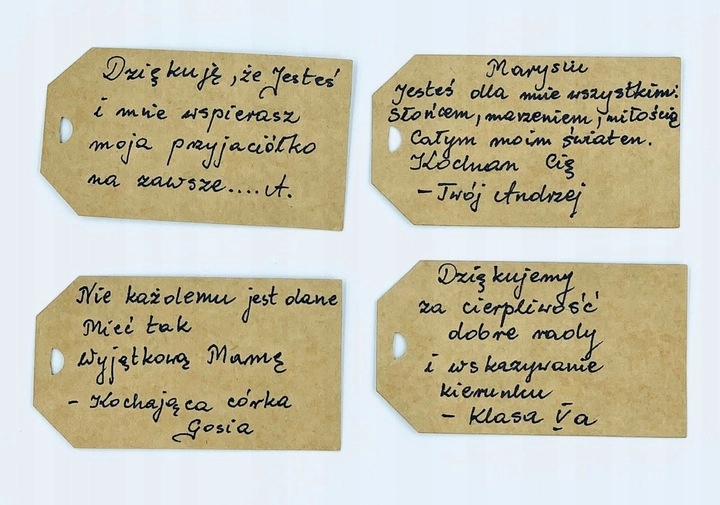 Dziękuję, że Jesteś
i mnie wspierasz
moja przyjaciółko
na zawsze....A.
Marysiu
Jesteś dla mnie wszystkim:
Słońcem, marzeniem, miłością
Całym moim światem.
Kocham Cię
– Twój Andrzej
Nie każdemu jest dane
Mieć tak
wyjątkową Mamę
– Kochająca córka
Gosia
Dziękujemy
za cierpliwość
dobre rady
i wskazywanie
kierunku
– Klasa Va